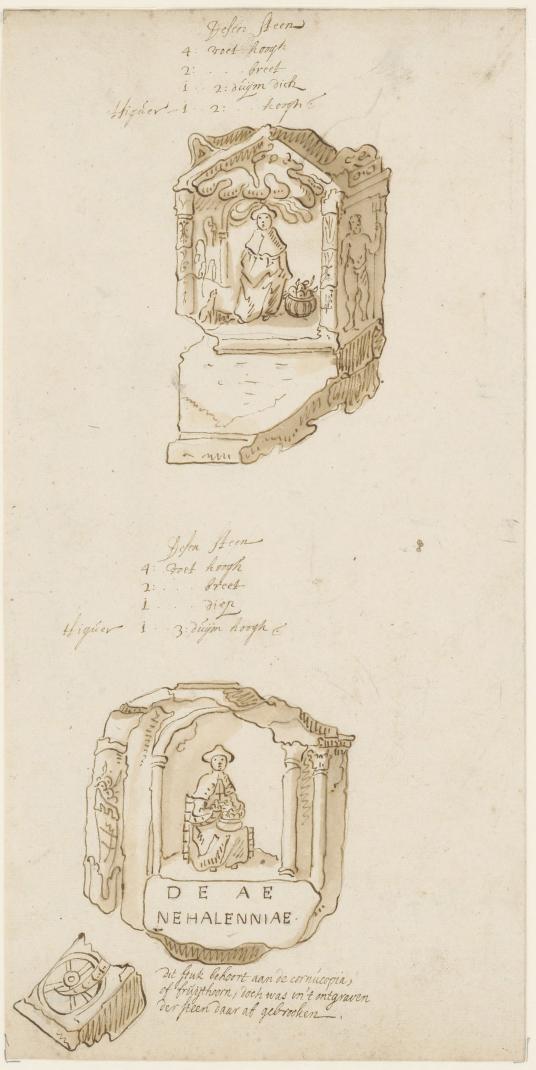 Desen steen
4: voet hoogh
2: . . . breet
1 . 2: duijm dick
t figuer 1 2: . . . hoogh
Desen steen
4: voet hoogh
2: . . . breet
1 . . . diep
t figuer 1 . . 3: duijm hoogh
DEAE
NEHALENNIAE
Dit stuk behoort aan de cornucopia,
of fruijthoorn, doch was in't ontgraven
der steen daar af gebrooken.